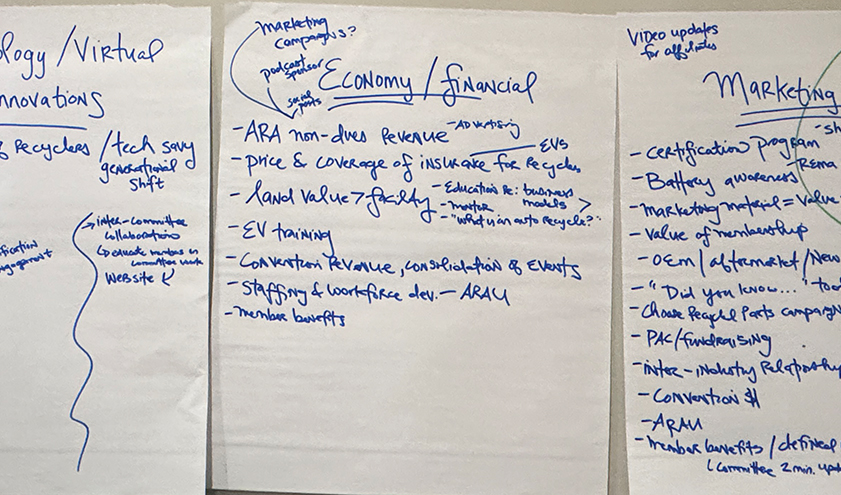 ology / Virtual
nnovations
Recyclers / tech savy
generational
shift
inter-committee
collaborations
educate members on
committee work
Website
Marketing
campaigns?
podcast
sponsor
social
posts
Economy / Financial
- ARA non-dues Revenue - Advertising
- price & coverage of insurance for Recyclers - EVs
- land value > facility - Education Re: business
models >
- mentor
- "What is an auto recycler?"
- EV training
- Convention Revenue, consolidation of Events
- Staffing & workforce dev. - ARAU
- member benefits
Video updates
for affiliates
Marketing
- sh
- certification program
- Rema
- Battery awareness
- marketing material = value
- value of membership
- OEM / aftermarket / New
- "Did you know..." too
- Choose Recycled Parts campaign
- PAC / fundraising
- inter-industry Relationship
- Convention $
- ARAU
- member benefits / defined
(Committee 2 min. upda